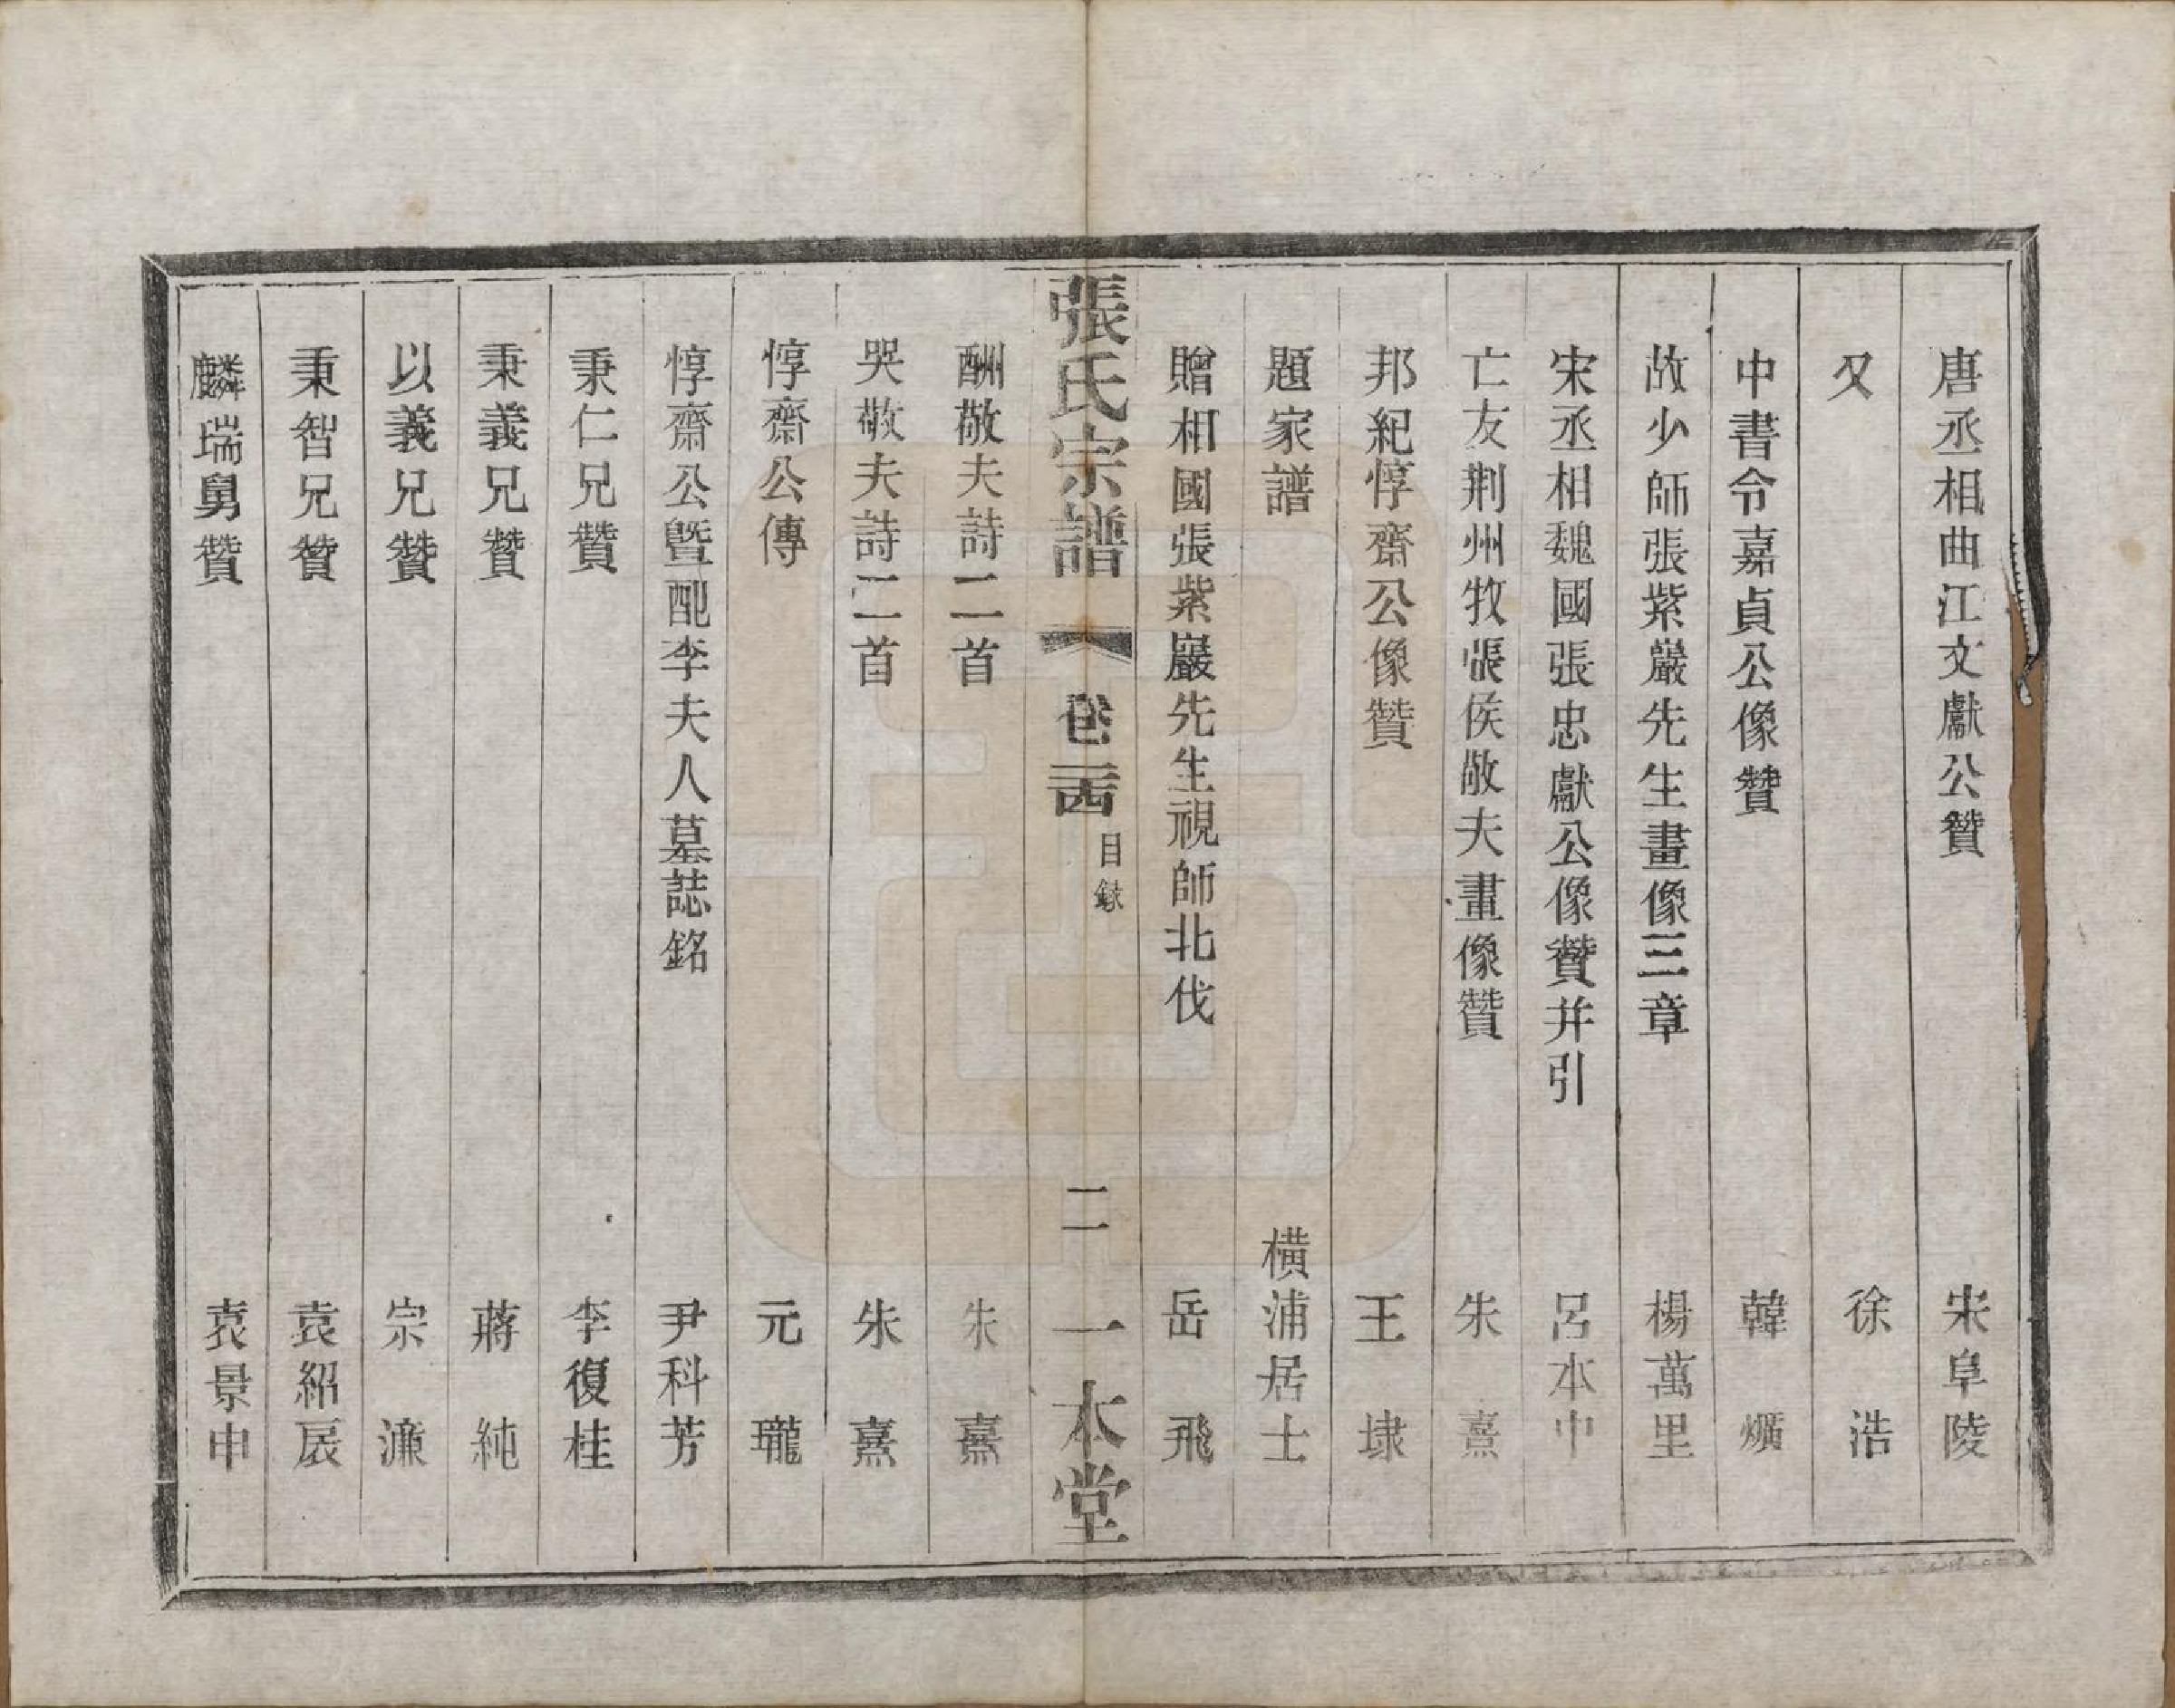 唐丞相曲江文獻公贊 宋阜陵
又 徐浩
中書令嘉貞公像贊 韓爌
故少師張紫巖先生畫像三章 楊萬里
宋丞相魏國張忠獻公像贊并引 呂本中
亡友荆州牧張侯敬夫畫像贊 朱熹
邦紀惇齋公像贊 王埭
題家譜 橫浦居士
贈相國張紫巖先生視師北伐 岳飛
張氏宗譜 卷二十四 目録 二 一本堂
酬敬夫詩二首 朱熹
哭敬夫詩二首 朱熹
惇齋公傳 元瓏
惇齋公曁配李夫人墓誌銘 尹科芳
秉仁兄贊 李復桂
秉義兄贊 蔣純
以義兄贊 宗濂
秉智兄贊 袁紹辰
麟瑞舅贊 袁景申